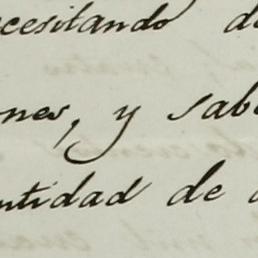 cesitando d
nes, y sab
ntidad de